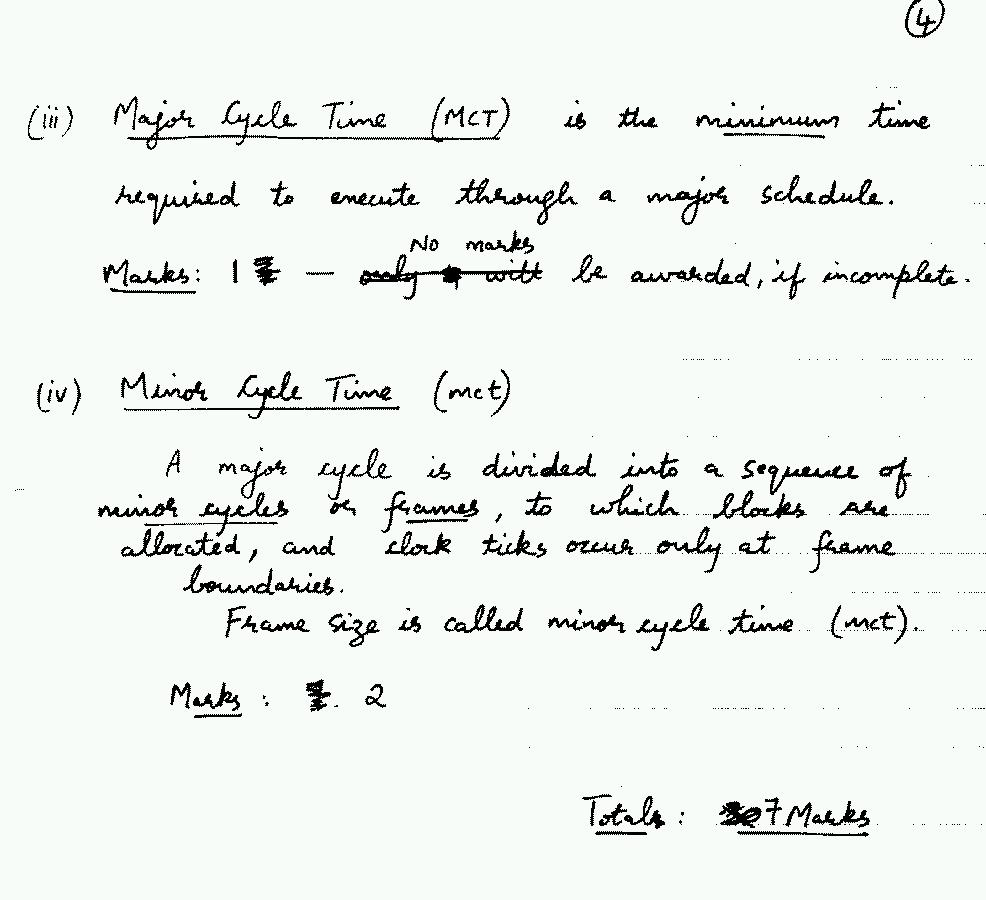 4
(iii) Major Cycle Time (MCT) is the minimum time
required to execute through a major schedule.
No marks
Marks: 1 — only will be awarded, if incomplete.
(iv) Minor Cycle Time (mct)
A major cycle is divided into a sequence of
minor cycles or frames, to which blocks are
allocated, and clock ticks occur only at frame
boundaries.
Frame size is called minor cycle time (mct).
Marks : 2
Totals : 7 Marks